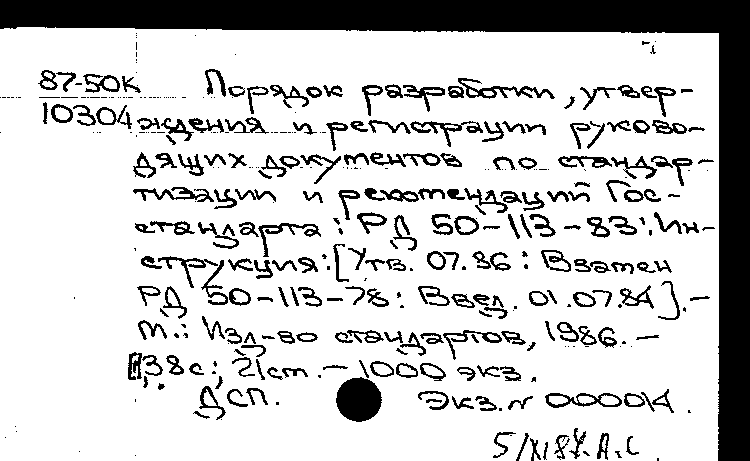 87-50К Порядок разработки, утвер-
10304 ждения и регистрации руково-
дящих документов по стандар-
тизации и рекомендаций Гос-
стандарта: РД 50-113-83: Ин-
струкция: [Утв. 07.86: Взамен
РД 50-113-78: Введ. 01.07.84]. -
М.: Изд-во стандартов, 1986. -
38с.; 21 cm. - 1000 экз.
ДСП. Экз. N 000014.
5/XI 87. А.С.